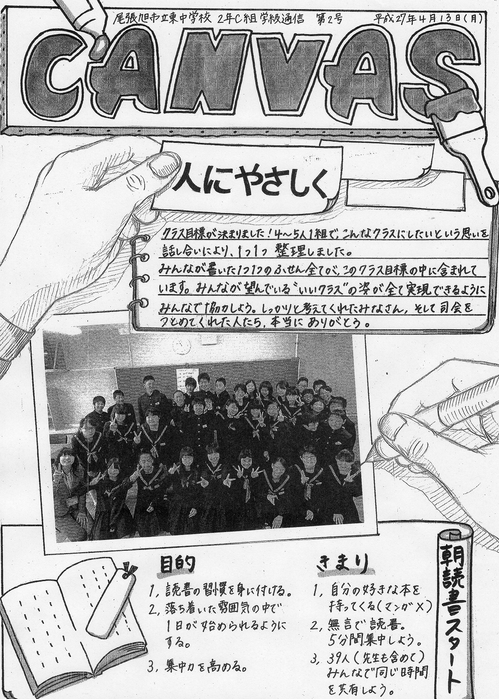 尾張旭市立東中学校 2年C組学級通信 第2号 平成27年4月13日(月)
CANVAS
人にやさしく
クラス目標が決まりました！4〜5人1組で、こんなクラスにしたいという思いを
話し合いにより、1つ1つ 整理しました。
みんなが書いた1つ1つのふせん全てが、このクラス目標の中に含まれて
います。みんなが望んでいる"いいクラス"の姿が全て実現できるように
みんなで協力しよう。しっかりと考えてくれたみなさん、そして司会を
つとめてくれた人たち、本当にありがとう。
朝読書スタート
目的
1. 読書の習慣を身に付ける。
2. 落ち着いた雰囲気の中で
1日が始められるように
する。
3. 集中力を高める。
きまり
1. 自分の好きな本を
持ってくる(マンガ×)
2. 無言で読書。
5分間集中しよう。
3. 39人(先生も含めて)
みんなで同じ時間
を共有しよう。